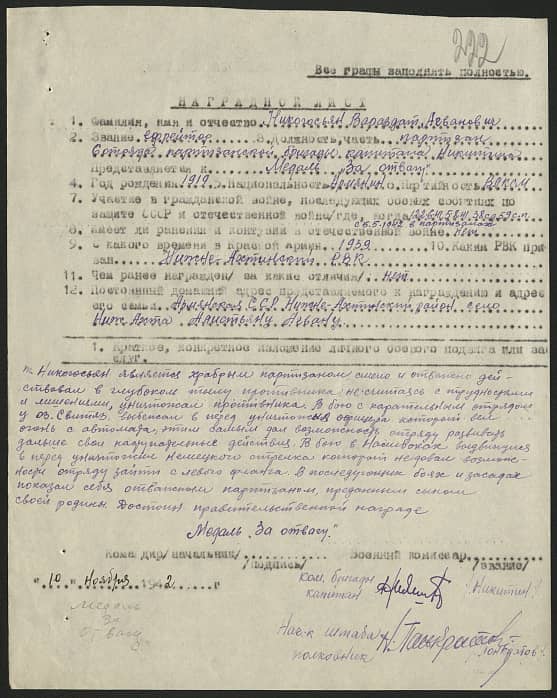 222
Все графы заполнять полностью.
НАГРАДНОЙ ЛИСТ
1. Фамилия, имя и отчество Никогосьян Вараздат Агванович
2. Звание ефрейтор 3. Должность, часть партизан
6 отряда партизанской бригады капитана Никитина
Представляется к Медаль "За отвагу"
4. Год рождения 1919 5. Национальность Армянин 6. Партийность ВЛКСМ
7. Участие в гражданской войне, последующих боевых событиях по
защите СССР и отечественной войне/где, когда/
с 6.5.1942 в партизанах
8. Имеет ли ранения и контузии в отечественной войне. Нет
9. С какого времени в Красной Армии 1939 10. Каким РВК при
зван Нижне-Ахтинским РВК
11. Чем ранее награжден/ за какие отличия/ Нет
12. Постоянный домашний адрес представляемого к награждению и адрес
его семьи. Армянская ССР Нижне-Ахтинский район село
Ниж. Ахта Агвану
1. Краткое, конкретное изложение личного боевого подвига или зас
луг.
т. Никогосьян является храбрым партизаном смело и отважно дей-
ствовал в глубоком тылу противника не считаясь с трудностями
и лишениями, уничтожал противника. В бою с карательным отрядом
у оз. Свитязь вперед уничтожил офицера который вел
огонь с автомата, этим самым дал возможность отряду развивать
дальше свои наступательные действия. В бою в выдвинулся
вперед уничтожил немецкого стрелка который не давал возмож-
ности отряду зайти с левого фланга. В последующих боях и засадах
показал себя отважным партизаном, преданным сыном
своей родины. Достоин правительственной награде
Медаль "За отвагу"
Командир/начальник/ Военный комиссар
/подпись/ /звание/
"10" Ноября 1942 г.
Ком. бригады
капитан /Никитин/
Медаль
За
отвагу
Нач-к штаба
полковник /Панкратов/